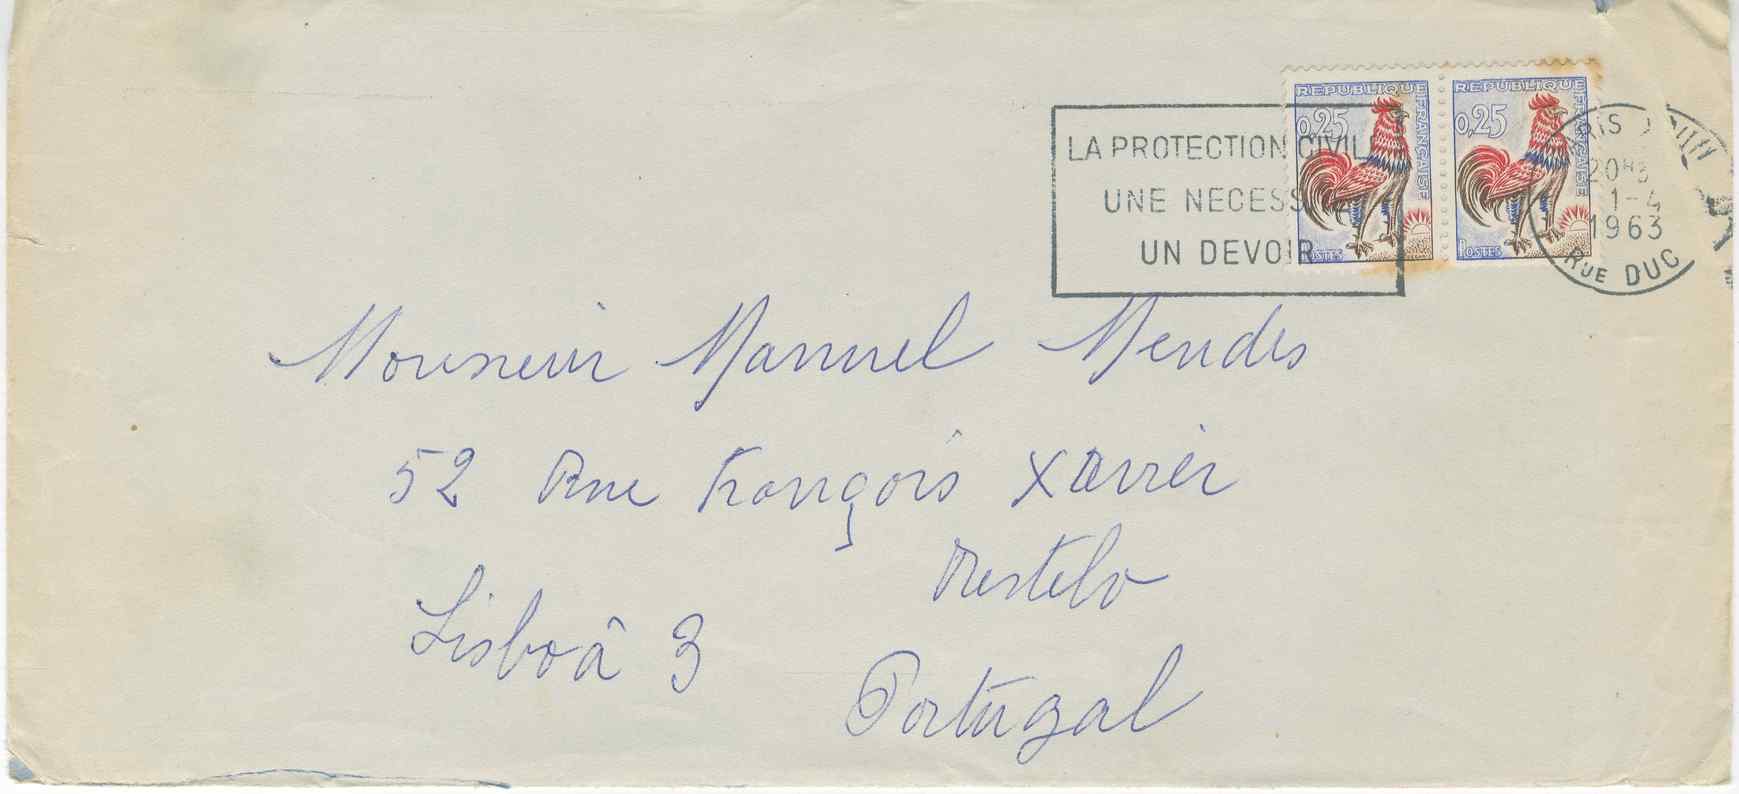 REPUBLIQUE FRANÇAISE
0,25
POSTES
REPUBLIQUE FRANÇAISE
0,25
POSTES
LA PROTECTION CIVIL
UNE NECESS
UN DEVOIR
RIS
20H
1-4
1963
RUE DUC
Monsieur Manuel Mendes
52 Rue François Xavier
Restelo
Lisboâ 3
Portugal